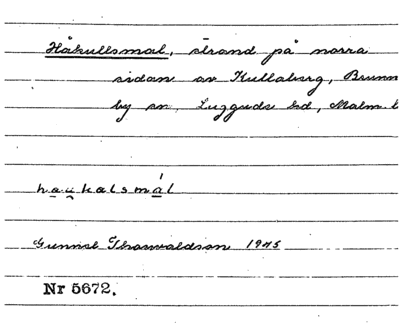 Håkullsmal, strand på norra
sidan av Kullaberg, Brunn
by sn, Luggude hd, Malm. l
ha̤u̯kalsmá̤l
Gunnel Thorwaldson 1945
Nr 5672.